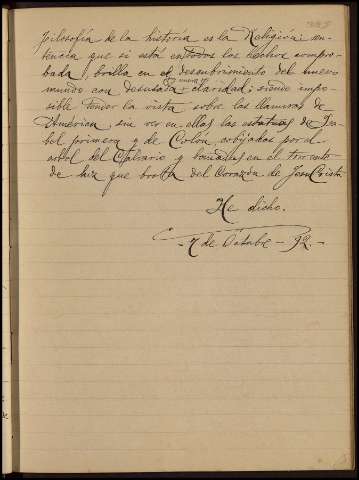 filosofía de la historia es la Religión: sen-
tencia que si está en todos los hechos compro-
bada, brilla en el descubrimiento del nuevo
mundo con desusada claridad; siendo impo-
sible tender la vista sobre las llanuras de
América, sin ver en ellas las estatuas de Isa-
bel primera y de Colón, cobijadas por el
arbol del Calvario y bañadas en el torrente
de luz que brota del Corazón de Jesu Cristo
He dicho.
- 7 de Octubre - 92. -